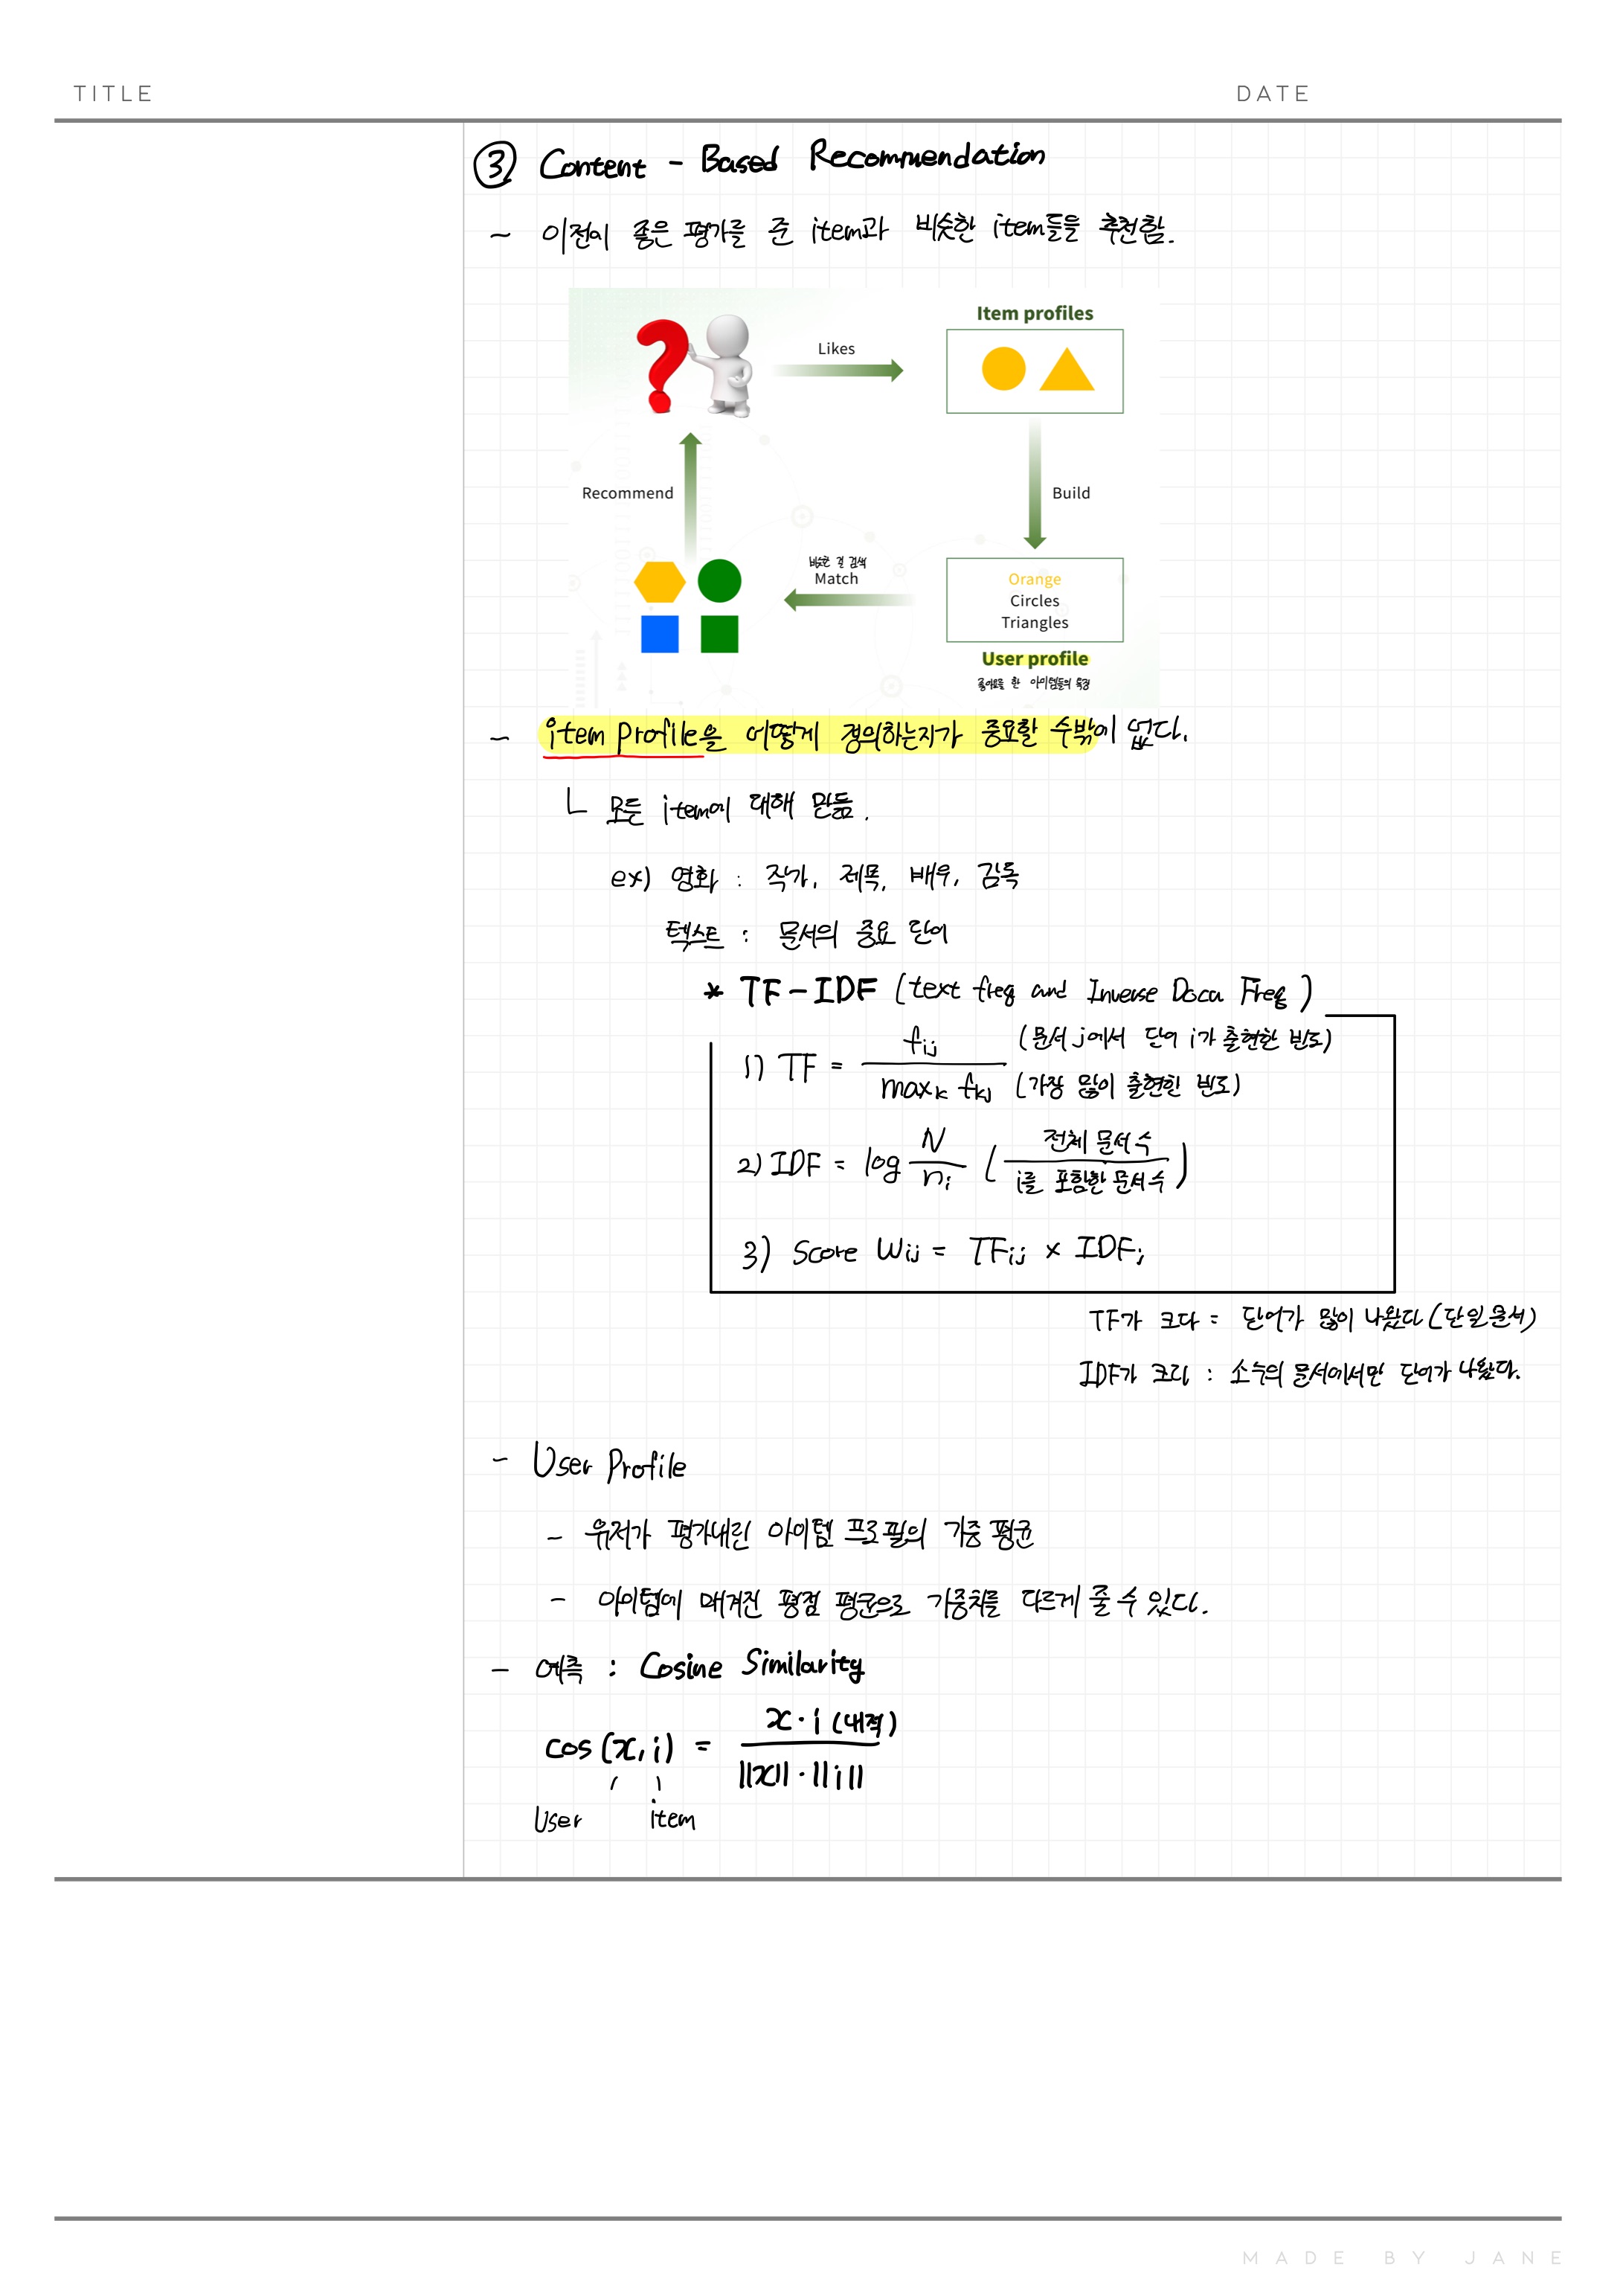 TITLE
DATE
③ Content - Based Recommendation
- 이전에 좋은 평가를 준 item과 비슷한 item들을 추천함.
Item profiles
Likes
Recommend
Build
비슷한 걸 검색
Match
Orange
Circles
Triangles
User profile
좋아요를 한 아이템들의 특징
- item profile을 어떻게 정의하는지가 중요할 수밖에 없다.
ㄴ 모든 item에 대해 만듦.
ex) 영화 : 작가, 제목, 배우, 감독
텍스트 : 문서의 중요 단어
* TF-IDF (text freq and Inverse Docu Freq)
1) TF = fij / maxk fkj (문서 j에서 단어 i가 출현한 빈도) (가장 많이 출현한 빈도)
2) IDF = log N / ni (전체 문서 수 / i를 포함한 문서 수)
3) Score Wij = TFij × IDFi
TF가 크다 = 단어가 많이 나왔다 (단일문서)
IDF가 크다 : 소수의 문서에서만 단어가 나왔다.
- User Profile
- 유저가 평가내린 아이템 프로필의 가중 평균
- 아이템에 매겨진 평점 평균으로 가중치를 다르게 줄 수 있다.
- 예측 : Cosine Similarity
cos(x, i) = x · i (내적) / ||x|| · ||i||
User item
MADE BY JANE